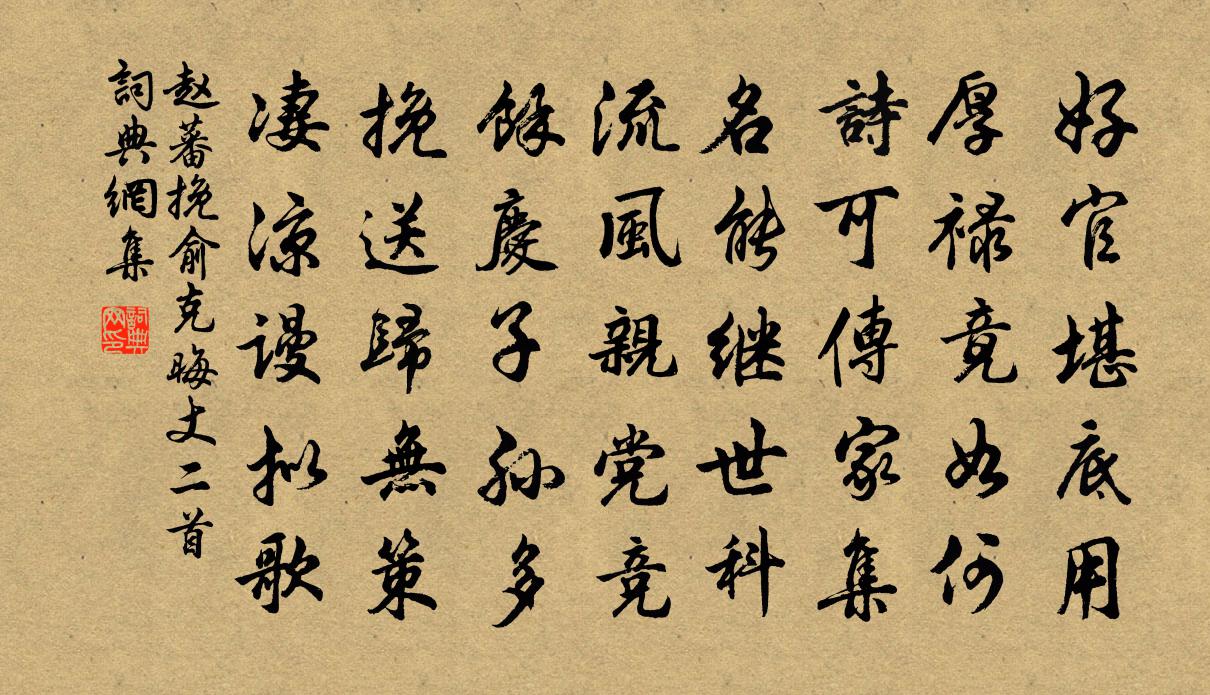 好官堪底用
厚禄竟如何
詩可傳家集
名能继世科
流風親党竞
餘慶子孙多
挽送歸無策
凄凉謾拟歌
赵蕃挽俞克晦丈二首
詞典網集
詞典网印